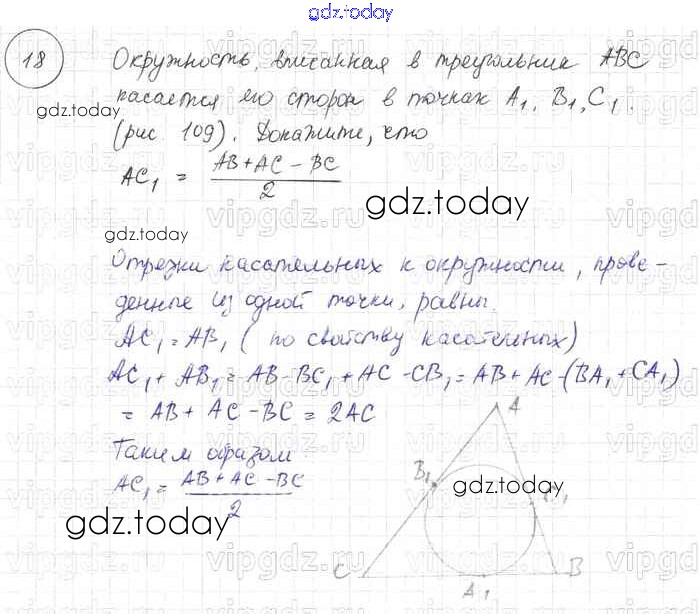 gdz.today
18
Окружность, вписанная в треугольник ABC
gdz.today
касается его сторон в точках A₁, B₁, C₁.
(рис 109). Докажите, что
AC₁ = (AB + AC − BC)/2
gdz.today
gdz.today
Отрезки касательных к окружности, прове-
денные из одной точки, равны.
AC₁ = AB₁ (по свойству касательных)
AC₁ + AB₁ = AB - BC₁ + AC - CB₁ = AB + AC - (BA₁ + CA₁)
= AB + AC - BC = 2AC
Таким образом
AC₁ = (AB + AC - BC)/2
gdz.today
A
B₁
gdz.today
C₁
C
B
A₁
vipgdz.ru